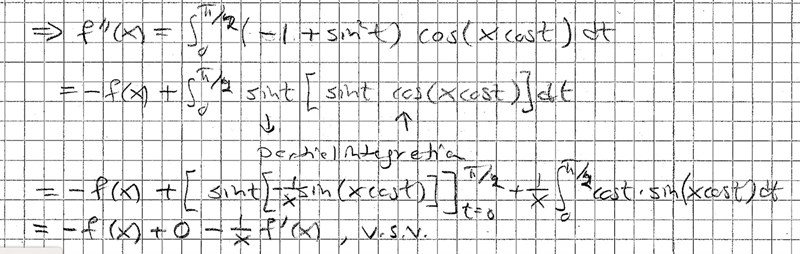 ⇒ f''(x) = ∫₀^{π/2} (-1 + sin²t) cos(x cos t) dt
= -f(x) + ∫₀^{π/2} sin t [ sin t cos(x cos t) ] dt
↓ ↑
partiel integration
= -f(x) + [ sin t [ -1/x sin(x cos t) ] ]_{t=0}^{π/2} + 1/x ∫₀^{π/2} cos t · sin(x cos t) dt
= -f(x) + 0 - 1/x f'(x), v.s.v.